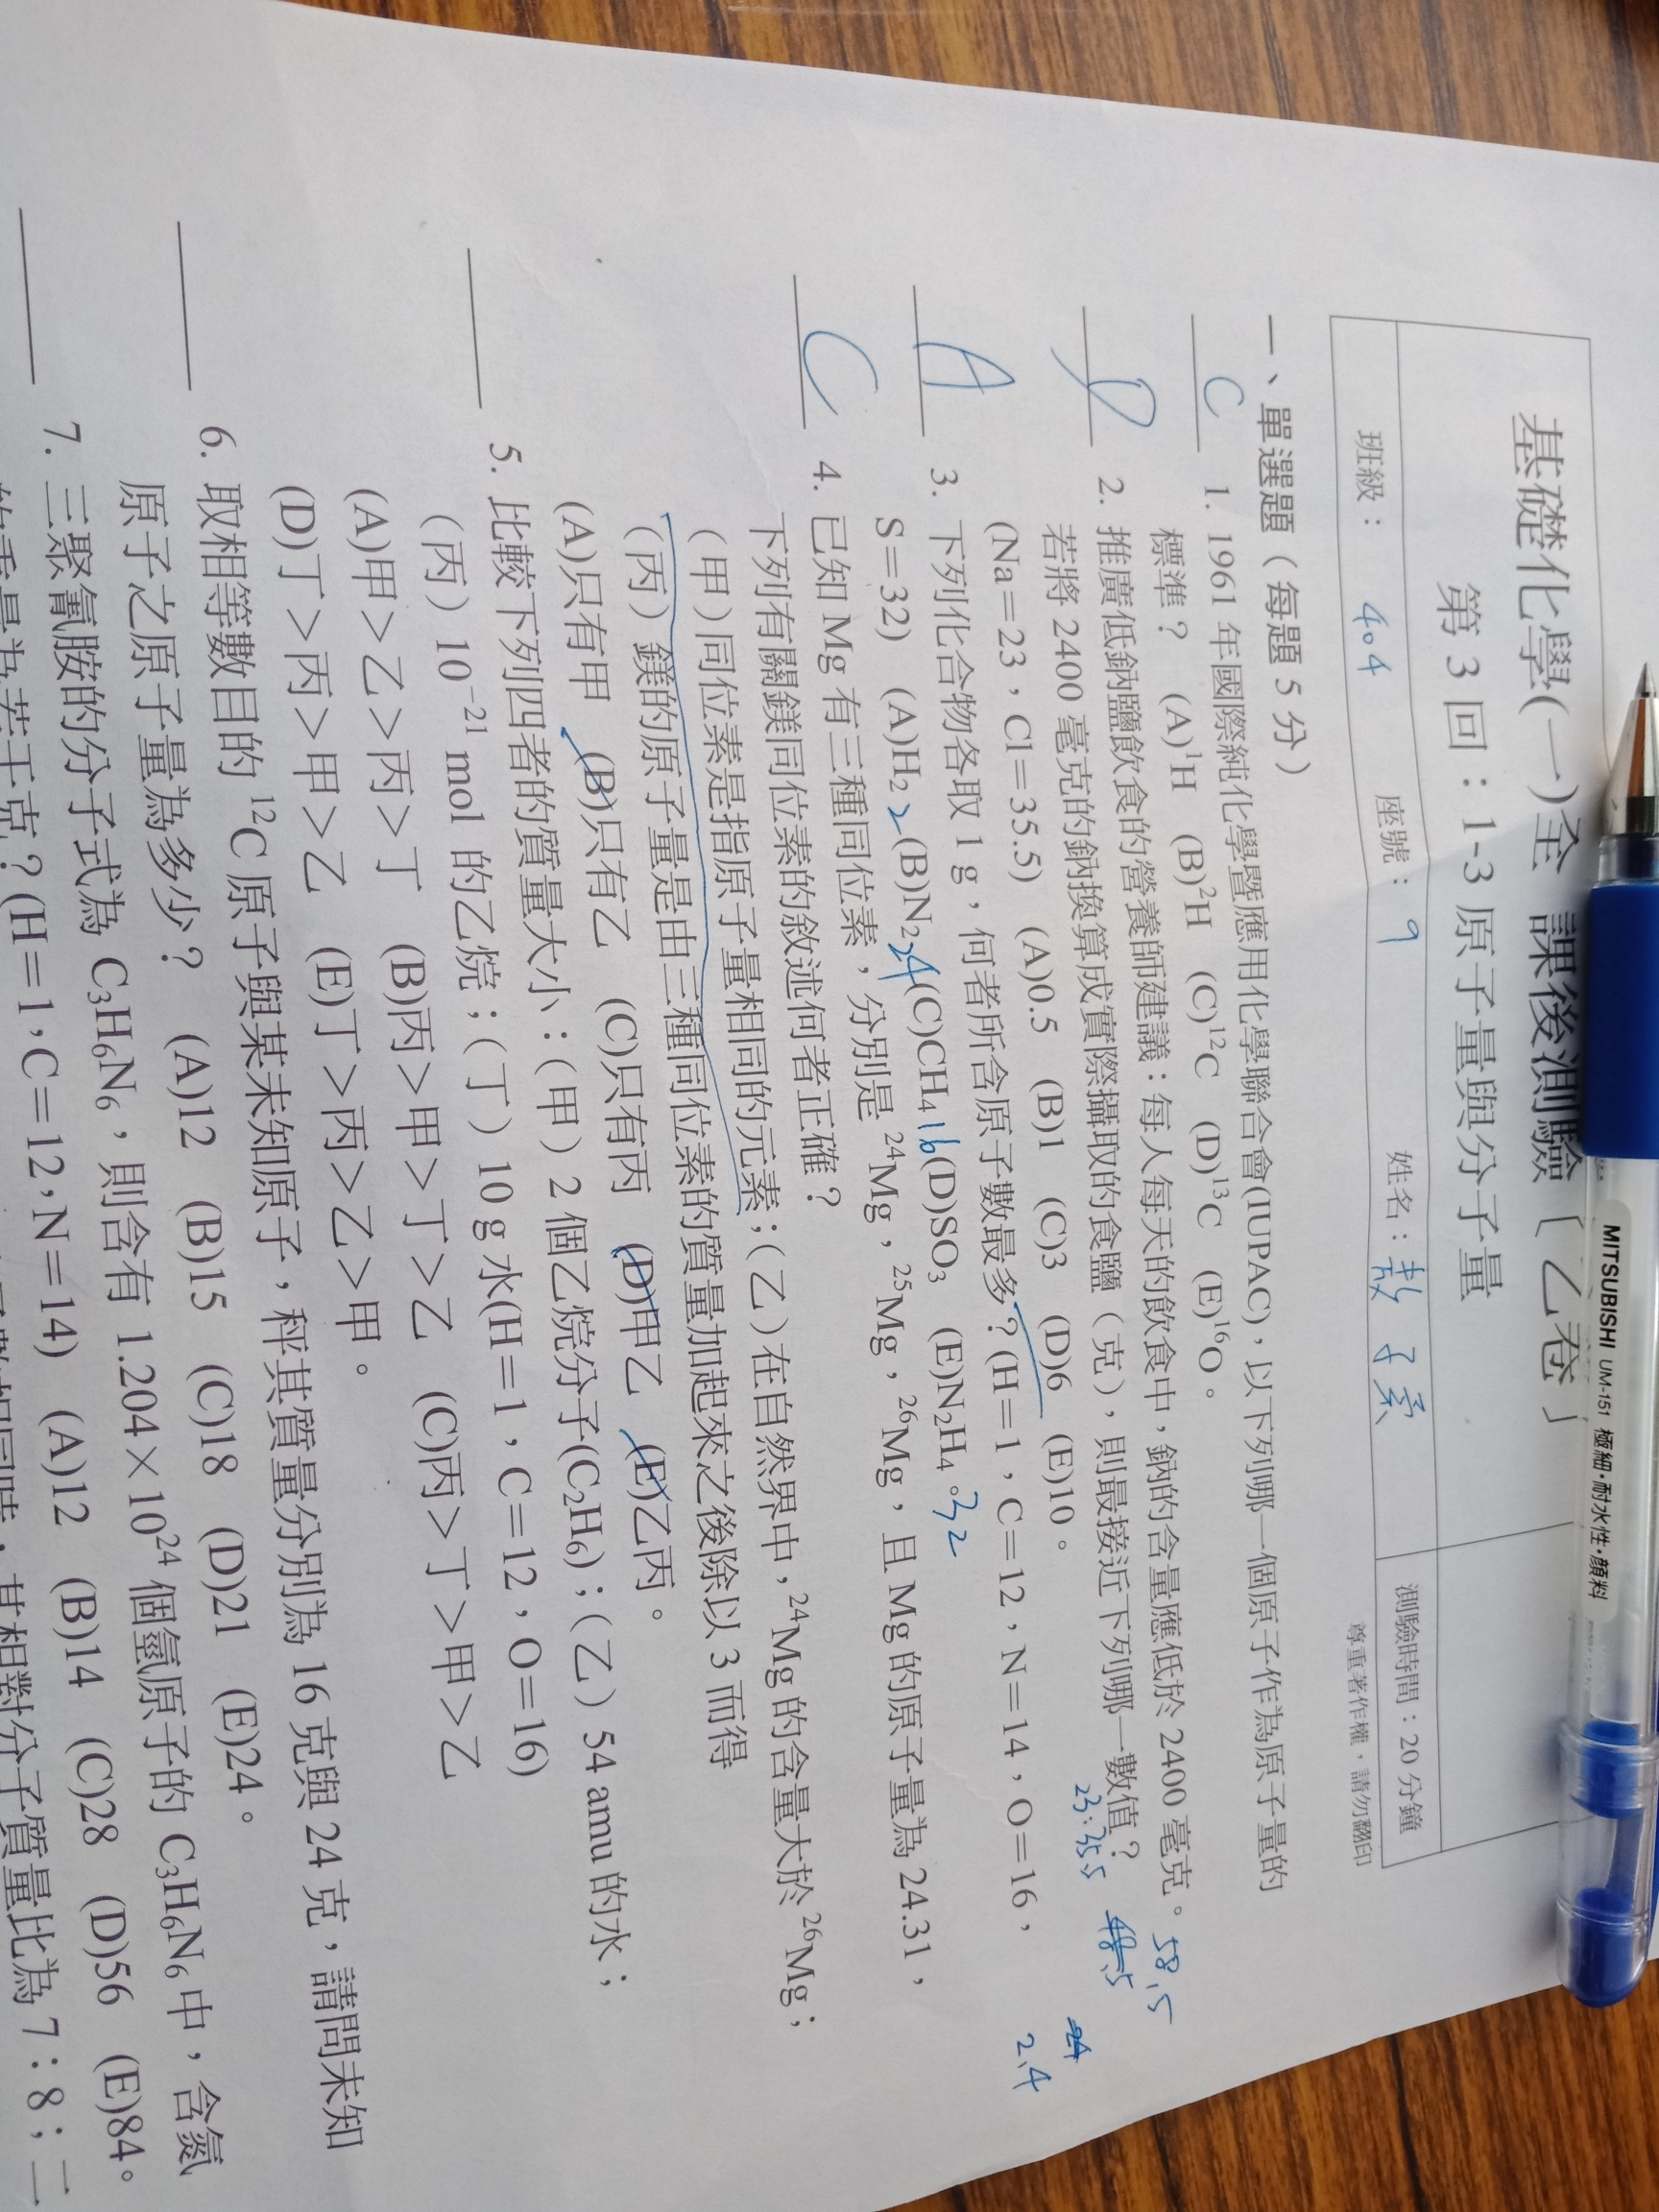 基礎化學(一)全 課後測驗〔乙卷〕
第 3 回：1-3 原子量與分子量
班級： 404 座號： 9 姓名： 測驗時間：20 分鐘
尊重著作權，請勿翻印
一、單選題（每題 5 分）
C 1. 1961 年國際純化學暨應用化學聯合會(IUPAC)，以下列哪一個原子作為原子量的
標準？ (A)¹H (B)²H (C)¹²C (D)¹³C (E)¹⁶O。
D 2. 推廣低鈉鹽飲食的營養師建議：每人每天的飲食中，鈉的含量應低於 2400 毫克。 58.5
若將 2400 毫克的鈉換算成實際攝取的食鹽（克），則最接近下列哪一數值？ 23:35.5
(Na＝23，Cl＝35.5) (A)0.5 (B)1 (C)3 (D)6 (E)10。 2.4
A 3. 下列化合物各取 1 g，何者所含原子數最多？(H＝1，C＝12，N＝14，O＝16，
S＝32) (A)H₂ 2 (B)N₂ 24 (C)CH₄ 16 (D)SO₃ (E)N₂H₄。 32
C 4. 已知 Mg 有三種同位素，分別是 ²⁴Mg，²⁵Mg，²⁶Mg，且 Mg 的原子量為 24.31，
下列有關鎂同位素的敘述何者正確？
（甲）同位素是指原子量相同的元素；（乙）在自然界中，²⁴Mg 的含量大於 ²⁶Mg；
（丙）鎂的原子量是由三種同位素的質量加起來之後除以 3 而得
(A)只有甲 (B)只有乙 (C)只有丙 (D)甲乙 (E)乙丙。
5. 比較下列四者的質量大小：（甲）2 個乙烷分子(C₂H₆)；（乙）54 amu 的水；
（丙）10⁻²¹ mol 的乙烷；（丁）10 g 水(H＝1，C＝12，O＝16)
(A)甲＞乙＞丙＞丁 (B)丙＞甲＞丁＞乙 (C)丙＞丁＞甲＞乙
(D)丁＞丙＞甲＞乙 (E)丁＞丙＞乙＞甲。
6. 取相等數目的 ¹²C 原子與某未知原子，秤其質量分別為 16 克與 24 克，請問未知
原子之原子量為多少？ (A)12 (B)15 (C)18 (D)21 (E)24。
7. 三聚氰胺的分子式為 C₃H₆N₆，則含有 1.204×10²⁴ 個氫原子的 C₃H₆N₆ 中，含氮
的重量為若干克？(H＝1，C＝12，N＝14) (A)12 (B)14 (C)28 (D)56 (E)84。
其相對分子質量比為 7：8；二
MITSUBISHI UM-151 極細・耐水性・顔料